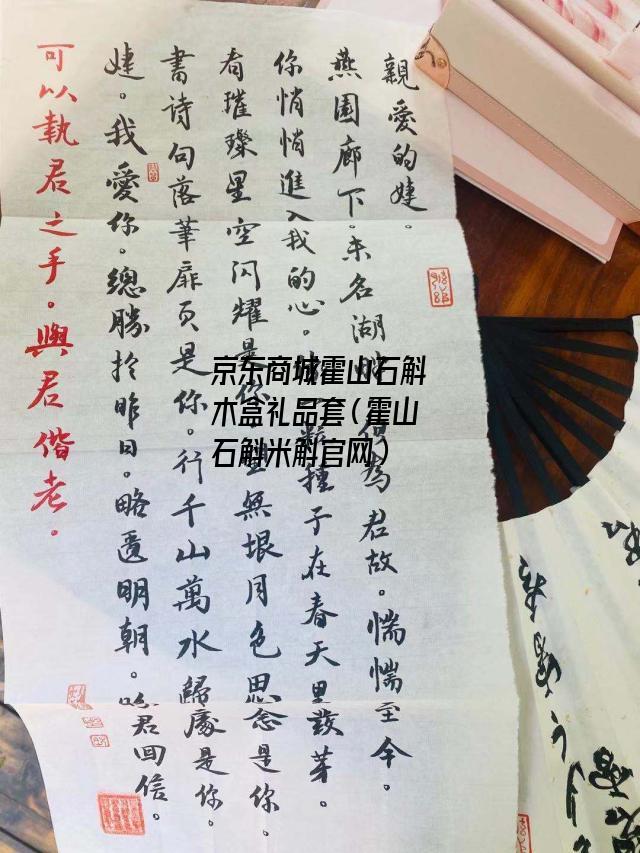 親愛的婕。
燕園廊下。未名湖畔。為君故。惴惴至今。
你悄悄進入我的心。種子在春天里發芽。
看璀璨星空閃耀是你。無垠月色思念是你。
書詩句落筆扉頁是你。行千山萬水歸處是你。
婕。我愛你。總勝於昨日。略匱明朝。盼君回信。
可以執君之手。與君偕老。
京东商城霍山石斛
木盒礼品套(霍山
石斛米斛官网)